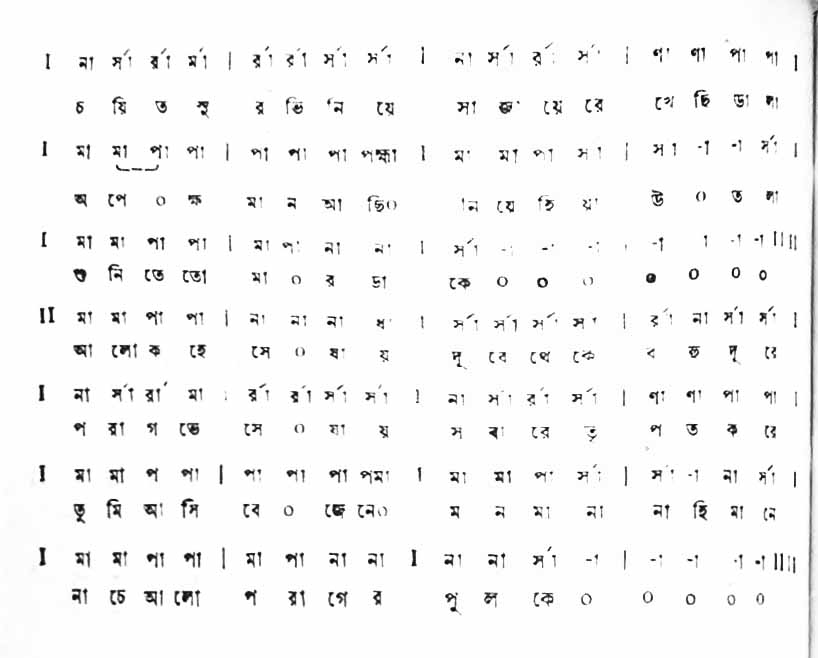 I না র্সা র্রা র্মা | র্রা র্রা র্সা র্সা I না র্সা র্রা র্সা | ণা ণা পা পা I
চ য়ি ত সু র ভি নি য়ে সা জা য়ে রে খে ছি ডা লা
I মা মা পা পা | পা পা পা পক্ষা I মা মা পা সা | সা -া -া র্সা I
অ পে ০ ক্ষ মা ন আ ছি০ নি য়ে হি য়া উ ০ ত লা
I মা মা পা পা | মা পা না না I র্সা -া -া -া | -া া -া -া IIII
শু নি তে তো মা ০ র ডা কে ০ ০ ০ ০ ০ ০ ০
II মা মা পা পা | না না না ধা I র্সা র্সা র্সা র্সা | র্রা না র্সা র্সা I
আ লো ক হে সে ০ যা য় দূ রে থে কে ব হু দূ রে
I না র্সা র্রা মা | র্রা র্রা র্সা র্সা I না র্সা র্রা র্সা | ণা ণা পা পা I
প রা গ ভে সে ০ যা য় স বা রে তৃ প ত ক রে
I মা মা প পা | পা পা পা পমা I মা মা পা র্সা | র্সা -া না র্সা I
তু মি আ সি বে ০ জে নে০ ম ন মা না না হি মা নে
I মা মা পা পা | মা পা না না I না না র্সা -া | -া -া -া -া IIII
না চে আ লো প রা গে র পু ল কে ০ ০ ০ ০ ০